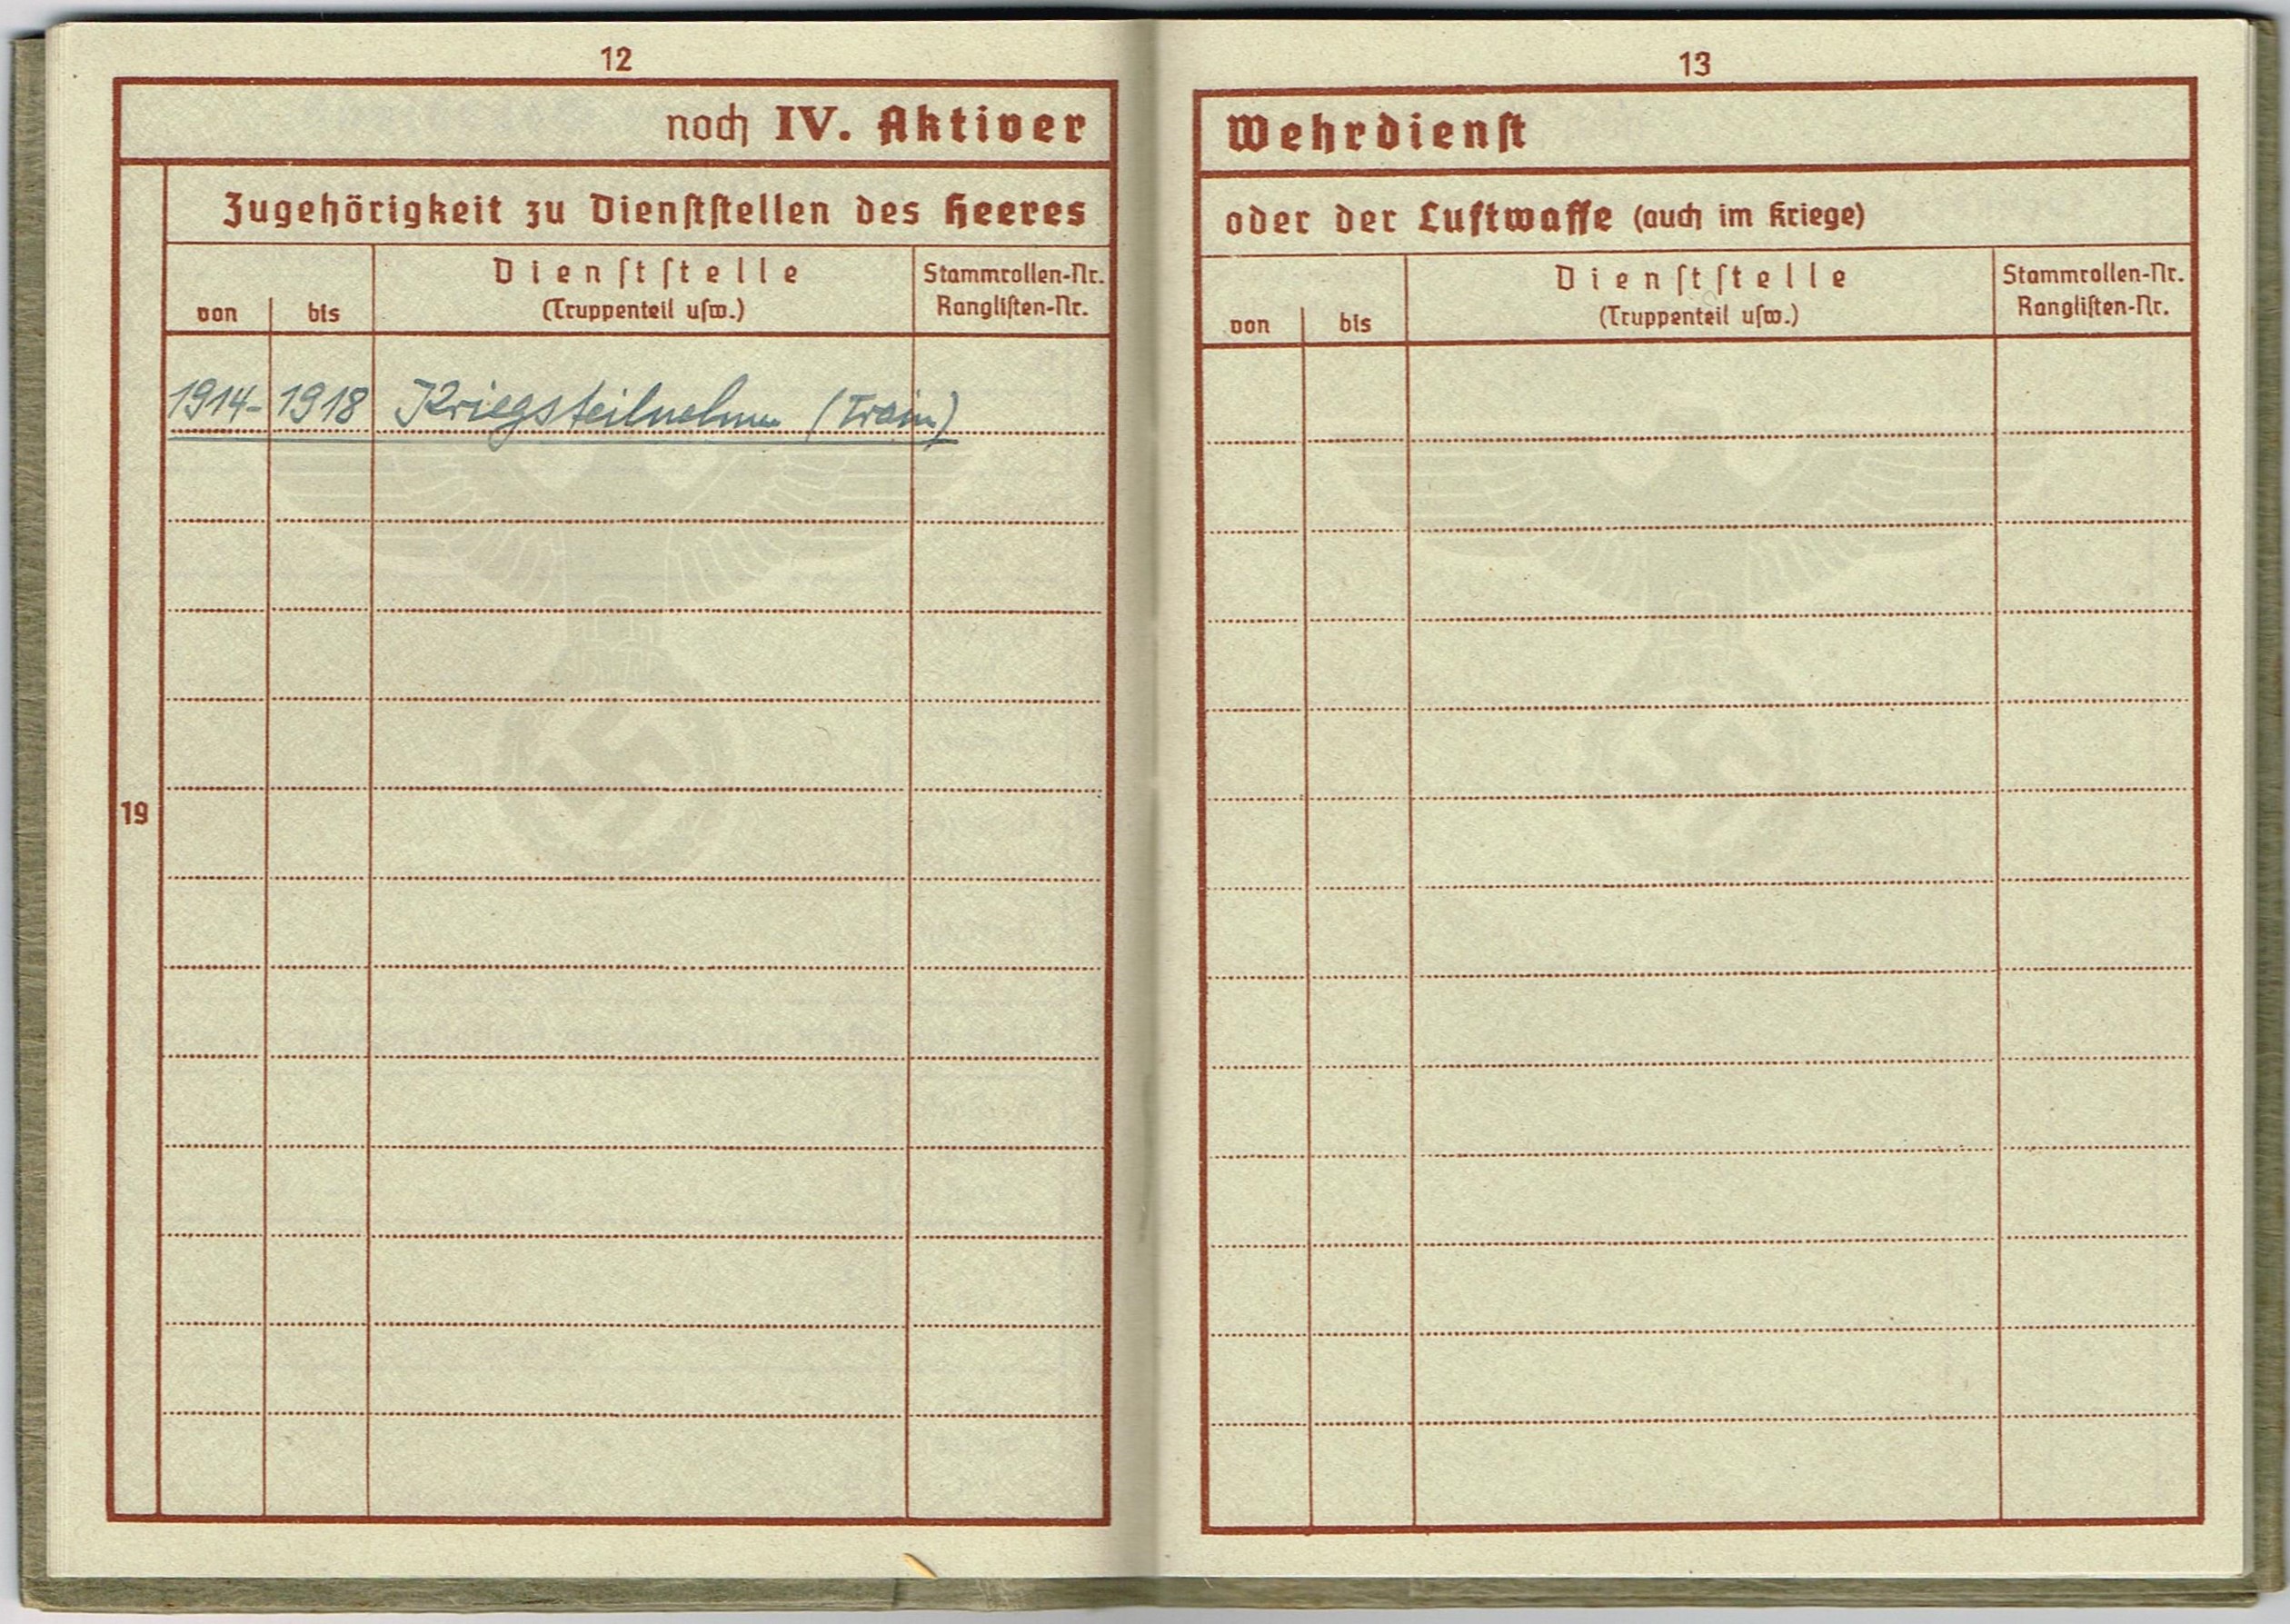 12
noch IV. Aktiver
Zugehörigkeit zu Dienststellen des Heeres
von bis Dienststelle (Truppenteil usw.) Stammrollen-Nr. Ranglisten-Nr.
1914- 1918 Kriegsteilnehmer (Train)
19
13
Wehrdienst
oder der Luftwaffe (auch im Kriege)
von bis Dienststelle (Truppenteil usw.) Stammrollen-Nr. Ranglisten-Nr.